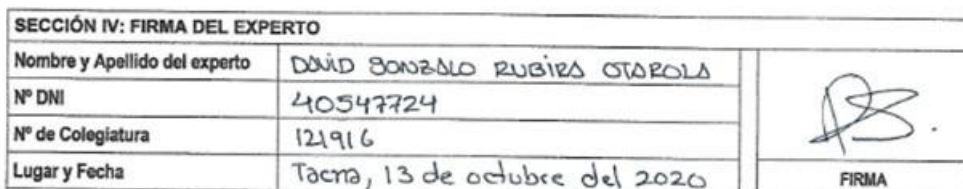 SECCIÓN IV: FIRMA DEL EXPERTO
Nombre y Apellido del experto DAVID GONZALO RUBIRA OTAROLA
Nº DNI 40547724
Nº de Colegiatura 121916
Lugar y Fecha Tacna, 13 de octubre del 2020
FIRMA